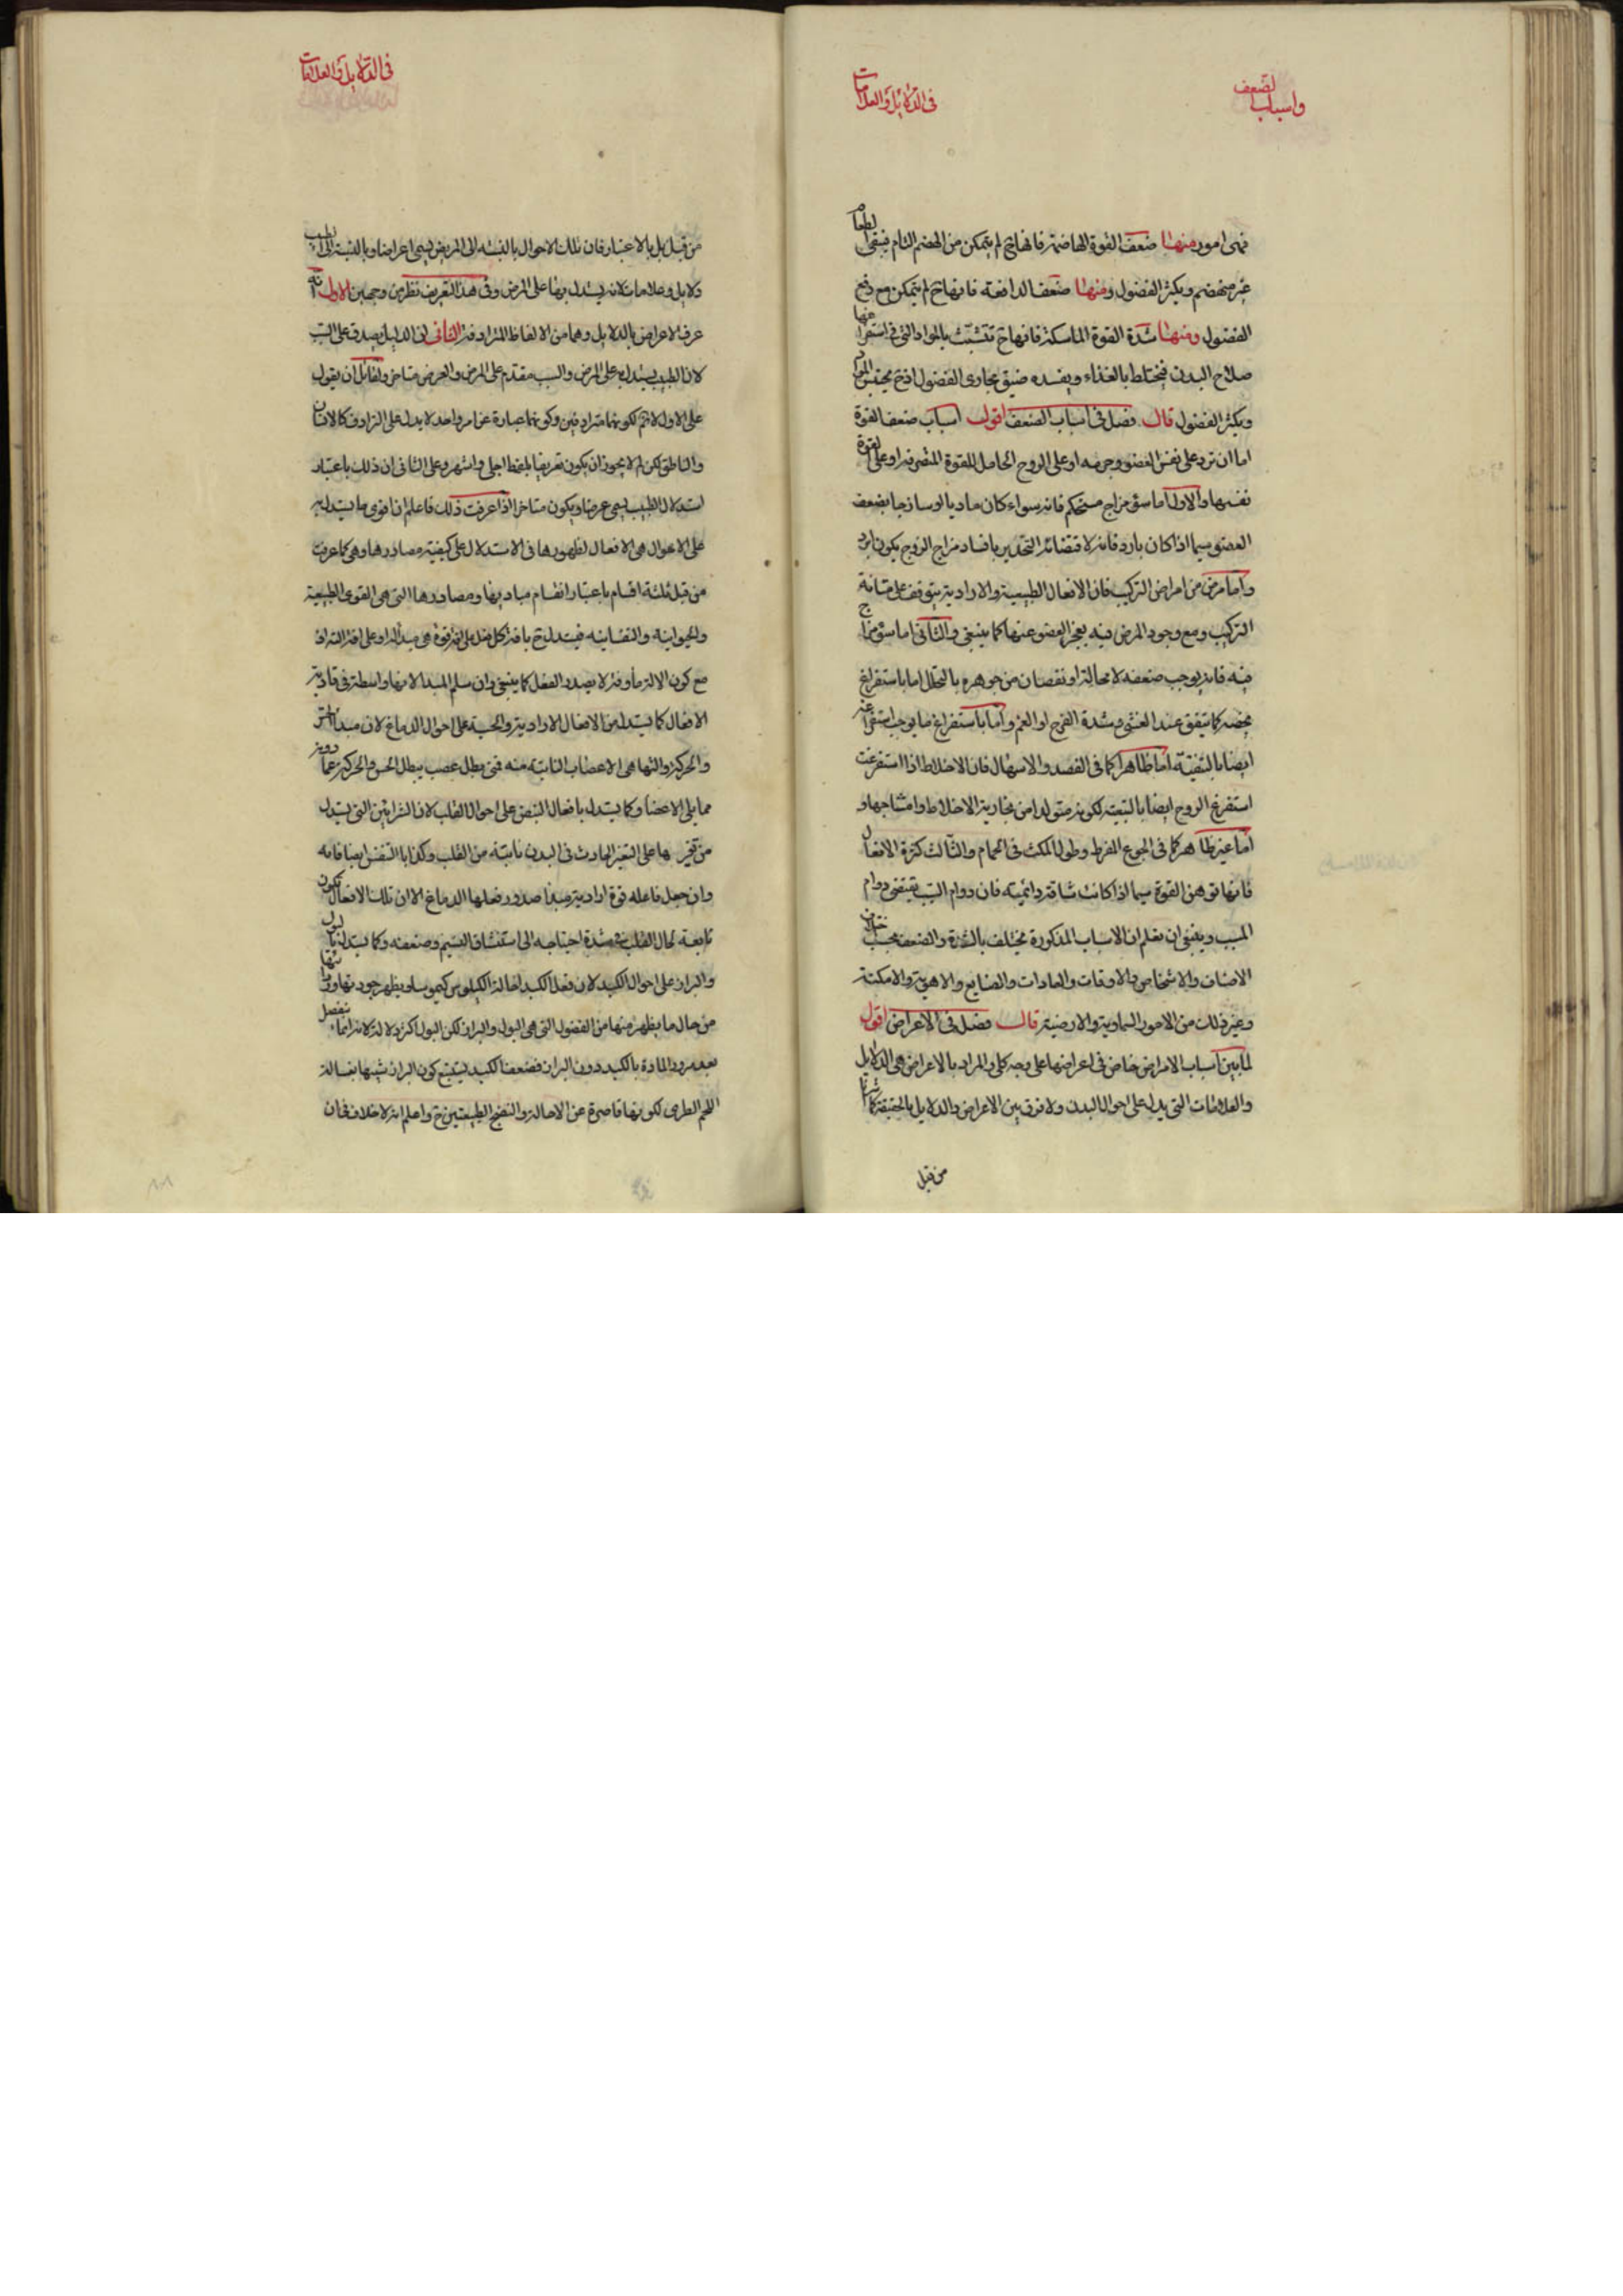 واسباب الضعف
فى الدلايل والعلامات
فهى امور منها ضعف القوة الهاضمة فانها ح لم يتمكن من الهضم التام فيبقى الطعام
غير منهضم ويكثر الفضول ومنها ضعف الدافعة فانها ح لم يتمكن مع دفع
الفضول ومنها شدة القوة الماسكة فانها ح تتشبث بالمواد التى فى استفراغها
صلاح البدن فيختلط بالغذاء ويفسده ضيق مجارى الفضول اذ ح يحتبس المواد
ويكثر الفضول قال فصل فى اسباب الضعف اقول اسباب ضعف القوة
اما ان ترد على نفس العضو وجرمه او على الروح الحامل للقوة المتصرفة او على القوة
نفسها والاول اما سوء مزاج مستحكم فانه سواء كان ماديا او ساذجا يضعف
العضو سيما اذا كان بارد فانه لاقتضائه التخدير بافساد مزاج الروح يكون ابرد
واما مرض من امراض التركيب فان الافعال الطبيعية والارادية يتوقف على متانة
التركيب ومع وجود المرض فيه يعجز العضو عنها كما ينبغى والثانى اما سوء مزاج
فيه فانه يوجب ضعفه لا محالة او نقصان من جوهره بالتحلل اما باستفراغ
يخصه كما يتفق عند الغشى وشدة الفرح او الغم واما باستفراغ ما يوجب استفراغه
ايضا بالتبعية اما ظاهرا كما فى الفصد والاسهال فان الاخلاط اذا استفرغت
استفرغ الروح ايضا بالتبعية لكونه متولدا من بخارية الاخلاط وامشاجها و
اما غير ظاهر كما فى الجوع المفرط وطول المكث فى الحمام والثالث كثرة الافعال
فانها توهن القوة سيما اذا كانت شاقة دائمية فان دوام السبب يقتضى دوام
المسبب وينبغى ان تعلم ان الاسباب المذكورة يختلف بالشدة والضعف بحسب اختلاف
الاصناف والاشخاص والاوقات والعادات والصنايع والاهوية والامكنة
وغير ذلك من الامور السماوية والارضية قال فصل فى الاعراض اقول
لما بين اسباب الامراض خاض فى اعراضها على وجه كلى والمراد بالاعراض هى الدلايل
والعلامات التى يدل على احوال البدن ولا فرق بين الاعراض والدلايل بالحقيقة كما اشرنا
من قبل
فى الدلايل والعلامات
من قبل بل بالاعتبار فان تلك الاحوال بالنسبة الى المريض يسمى اعراضا وبالنسبة الى الطبيب
دلايل وعلامات لانه يستدل بها على المرض وفى هذا التعريف نظر من وجهين الاول انه
عرف الاعراض بالدلايل وهما من الالفاظ المترادفة الثانى ان الدليل يصدق على السبب
لان الطبيب يستدل به على المرض والسبب مقدم على المرض والعرض متاخر ولقائل ان يقول
على الاول لا نم لكونهما مترادفين وكونهما عبارة عن امر واحد لا يدل على الترادف كالانسان
والناطق لكن لم لا يجوز ان يكون تعريفا بلفظ اجلى واشهر وعلى الثانى ان ذلك باعتبار
استدلال الطبيب يسمى عرضا ويكون متاخرا اذا عرفت ذلك فاعلم ان اقوى ما يستدل به
على الاحوال هى الافعال لظهورها فى الاستدلال على كيفية مصادرها وهى كما عرفت
من قبل ثلثة اقسام باعتبار انقسام مباديها ومصادرها التى هى القوى الطبيعية
والحيوانية والنفسانية فيستدل ح بافة كل فعل على افة قوة هى مبدأ له او على افة الته اذ
مع كون الالة مأوفة لا يصدر الفعل كما ينبغى وان سلم المبدا لانها واسطة فى تادية
الافعال كما يستدل من الافعال الارادية والحسية على احوال الدماغ لان مبدأ الحس
والحركة والتها هى الاعصاب النابتة منه فمتى بطل عصب يبطل الحس والحركة عما دونه
مما يلى الاعضا وكما يستدل بافعال النبض على احوال القلب لان الشرايين التى يستدل
بها على التغير الحادث فى البدن نابتة من القلب وكذا بالتنفس ايضا فانه
وان جعل فاعله قوة ارادية مبدا صدور فعلها الدماغ الا ان تلك الافعال تكون
تابعة لحال القلب فى شدة احتياجه الى استنشاق النسيم وضعفه وكما يستدل بالبول
والبراز على احوال الكبد لان فعل الكبد احالة الكيلوس كيموسا ويظهر جودتها ورداءتها
من حال ما يظهر منها من الفضول التى هى البول والبراز لكن البول اكثر دلالة لانه انما ينفصل
بعد مرور المادة بالكبد دون البراز فضعف الكبد يستتبع كون البراز شبيها بغسالة
اللحم الطرى لكونها قاصرة عن الاحالة والنضج الطبيعيين ح واعلم انه لا خلاف فى ان